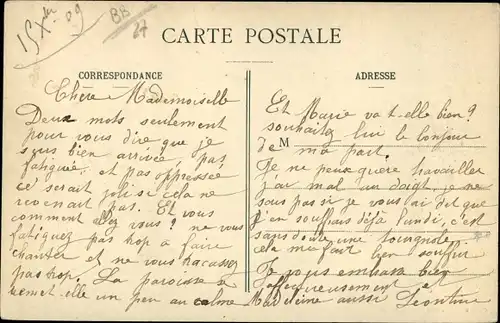 15 Xbre 09
BB
27
CARTE POSTALE
CORRESPONDANCE
ADRESSE
Chère Mademoiselle
Deux mots seulement
pour vous dire que je
suis bien arrivée, pas
fatiguée, et pas oppressée
ce serait joli si cela ne
revenait pas. Et vous
comment allez vous? ne vous
fatiguez pas trop à faire
chanter et ne vous tracassez
pas trop. La paroisse a
remet-elle un peu au calme
Et Marie va t-elle bien?
souhaitez lui le bonjour
de ma part.
M
Je ne peux guère travailler
j'ai mal un doigt, je ne
sais pas si je vous ai dit que
j'en souffrais déjà lundi, c'est
sans doute une tourgnole
cela me fait bien souffrir
Je vous embrasse bien
affectueusement et
Madeleine aussi Leontine